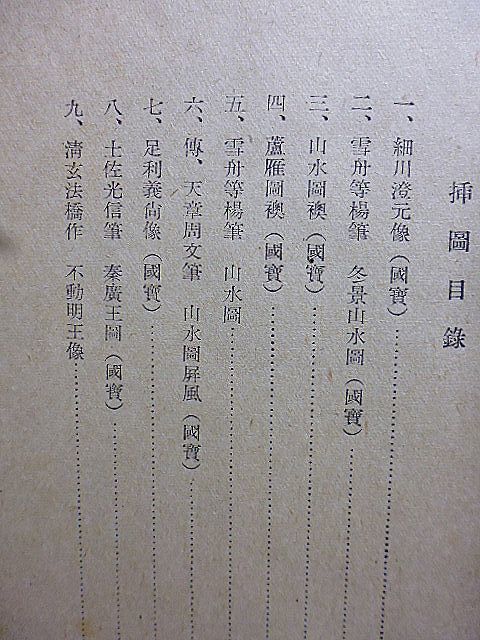 挿圖目錄
一、細川澄元像(國寶)
二、雪舟等楊筆 冬景山水圖(國寶)
三、山水圖襖(國寶)
四、蘆雁圖襖(國寶)
五、雪舟等楊筆 山水圖
六、傳、天章周文筆 山水圖屏風(國寶)
七、足利義尙像(國寶)
八、土佐光信筆 秦廣王圖(國寶)
九、淸玄法橋作 不動明王像